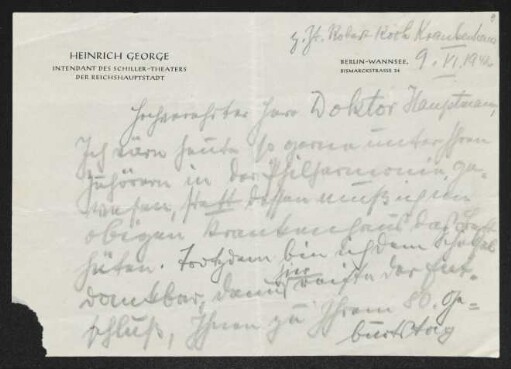 z. Zt. Robert Koch Krankenhaus
HEINRICH GEORGE
INTENDANT DES SCHILLER-THEATERS
DER REICHSHAUPTSTADT
BERLIN-WANNSEE,
BISMARCKSTRASSE 34
9. VI. 1942
Hochverehrter Herr Doktor Hauptmann,
Ich wäre heute so gerne unter Ihren
Zuhörern in der Philharmonie ge-
wesen, statt dessen muß ich im
obigen Krankenhaus das Bett
hüten. Trotzdem bin ich dem Schicksal
dankbar, denn hier reifte der Ent-
schluß, Ihnen zu Ihrem 80. Ge-
burtstag